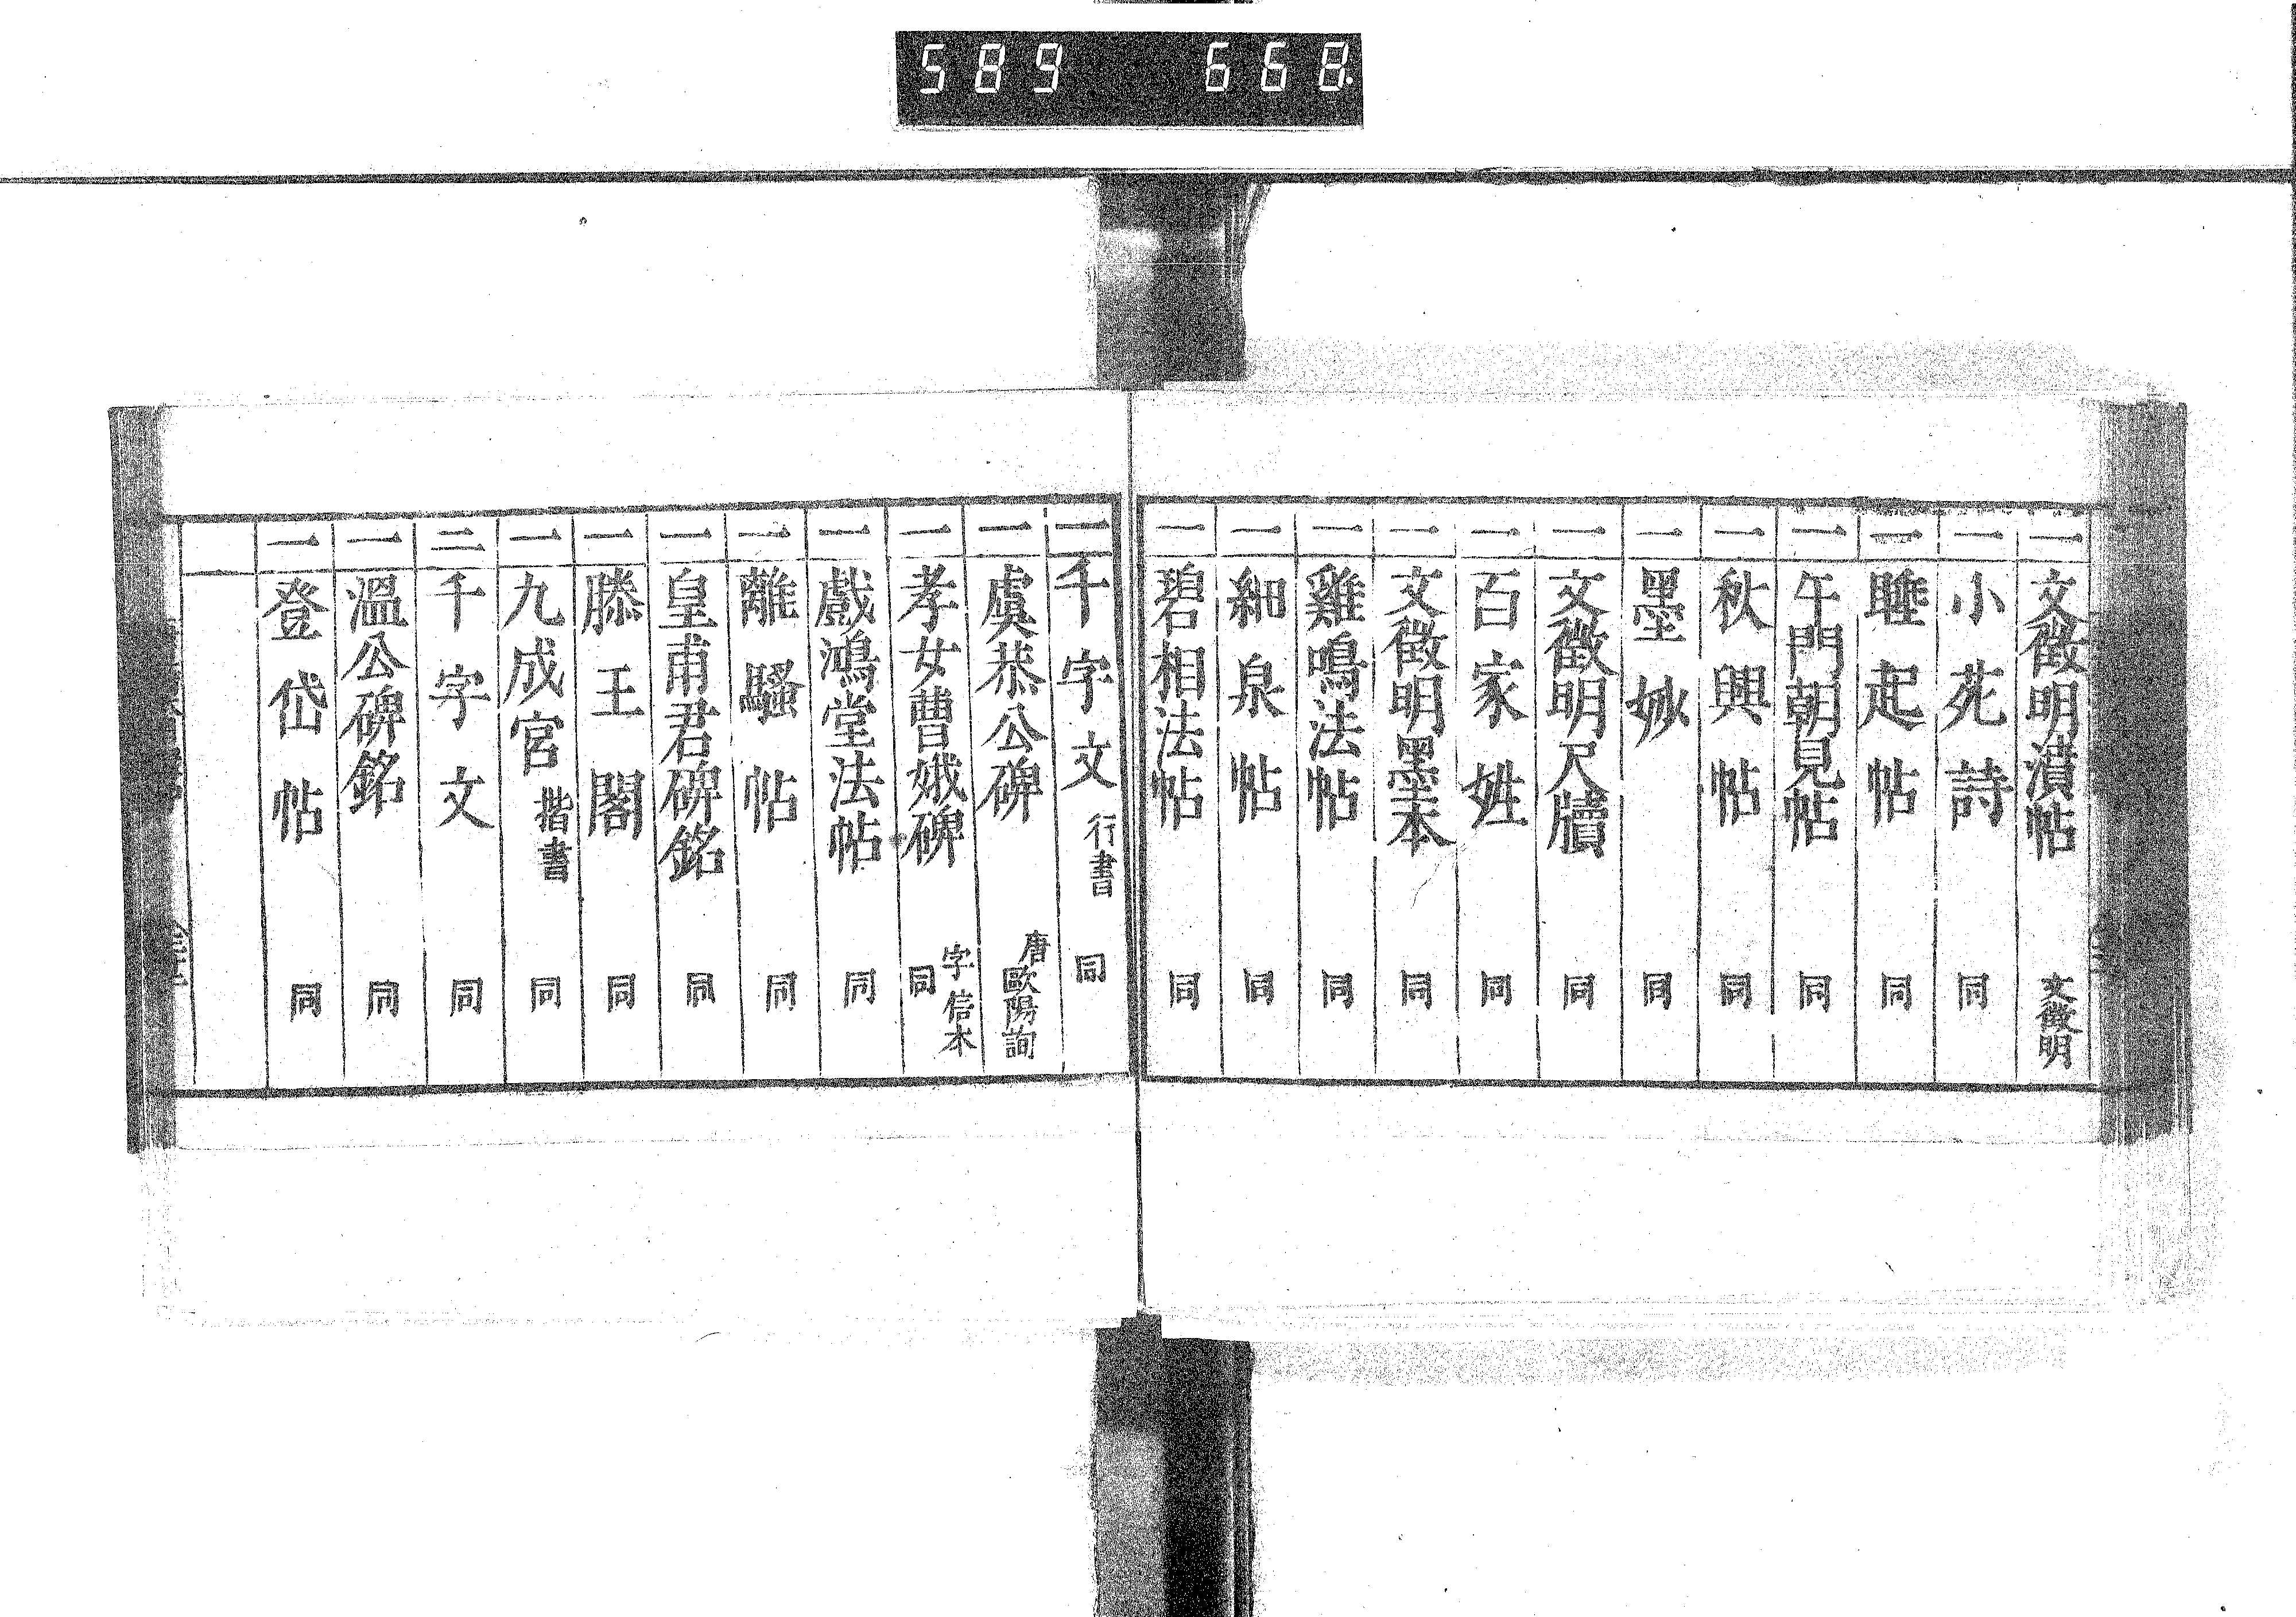 589 668.
一 文徴明漬帖 文徴明
一 小苑詩 同
一 睡起帖 同
一 午門朝見帖 同
一 秋興帖 同
一 墨妙 同
一 文徴明尺牘 同
一 百家姓 同
一 文徴明墨本 同
一 雞鳴法帖 同
一 細泉帖 同
一 碧相法帖 同
一 千字文 行書 同
一 虞恭公碑 唐歐陽詢
一 孝女曹娥碑 字信本 同
一 戲鴻堂法帖 同
一 離騷帖 同
一 皇甫君碑銘 同
一 滕王閣 同
一 九成宮 楷書 同
二 千字文 同
一 溫公碑銘 同
一 登岱帖 同